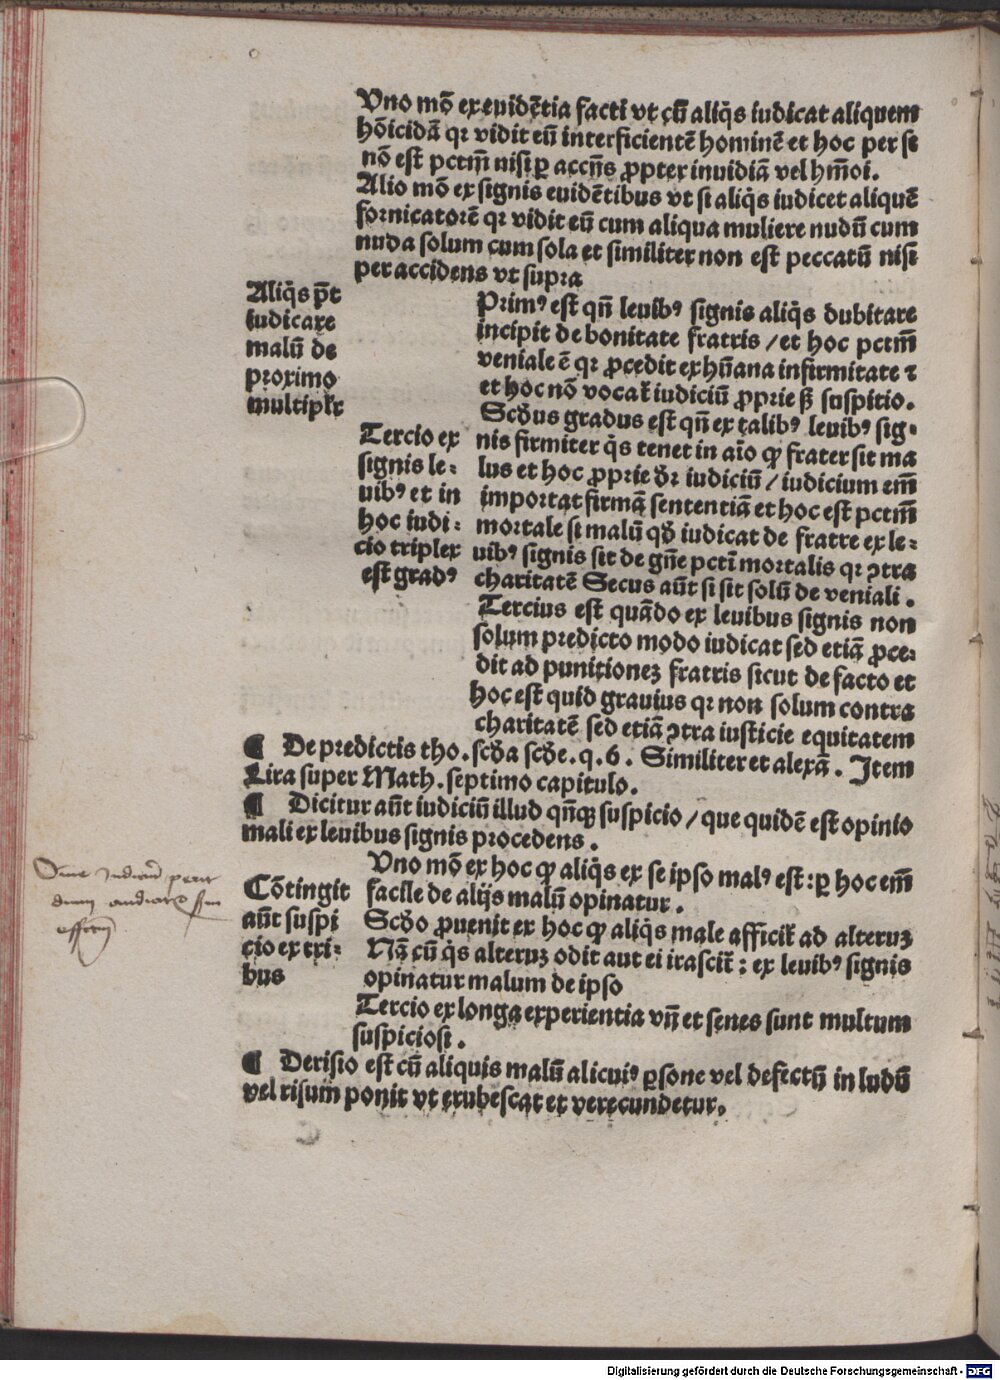 Uno mõ ex euidẽtia facti vt cũ aliq̃s iudicat aliquem
hõicidã qꝛ vidit eũ interficientẽ hominẽ et hoc per se
nõ est pctm̃ nisi ꝑ accñs ꝓpter inuidiã vel hm̃oi.
Alio mõ ex signis euidẽtibus vt si aliq̃s iudicet aliquẽ
fornicatorẽ qꝛ vidit eũ cum aliqua muliere nudũ cum
nuda solum cum sola et similiter non est peccatũ nisi
per accidens vt supra
Aliq̃s põt
iudicare
malũ de
proximo
multiplr̃
Tercio ex
signis le⸗
uibꝰ et in
hoc iudi⸗
cio triplex
est gradꝰ
Primꝰ est qñ leuibꝰ signis aliq̃s dubitare
incipit de bonitate fratris / et hoc pctm̃
veniale ẽ qꝛ ꝓcedit ex hũana infirmitate ⁊
et hoc nõ vocat̃ iudiciũ ꝓprie sꝫ suspitio.
Scďus gradus est qñ ex talibꝰ leuibꝰ sig⸗
nis firmiter q̃s tenet in aĩo ꝙ frater sit ma
lus et hoc ꝓprie dr̃ iudiciũ / iudicium em̃
importat firmã sententiã et hoc est pctm̃
mortale si malũ qď iudicat de fratre ex le⸗
uibꝰ signis sit de gñe pcti mortalis qꝛ ꝯtra
charitatẽ Secus aũt si sit solũ de veniali.
Tercius est quãdo ex leuibus signis non
solum predicto modo iudicat sed etiã ꝓce⸗
dit ad punitionez fratris sicut de facto et
hoc est quid grauius qꝛ non solum contra
charitatẽ sed etiã ꝯtra iusticie equitatem
¶ De predictis tho. scďa scďe. q. 6. Similiter et alexã. Item
Lira super Math. septimo capitulo.
¶ Dicitur aũt iudiciũ illud qñqꝫ suspicio / que quidẽ est opinio
mali ex leuibus signis procedens.
Cõtingit
aũt suspi
cio ex tri⸗
bus
Uno mõ ex hoc ꝙ aliq̃s ex se ipso malꝰ est: ꝑ hoc em̃
facile de alijs malũ opinatur.
Scďo ꝓuenit ex hoc ꝙ aliq̃s male afficit̃ ad alteruꝫ
Nã cũ q̃s alteruꝫ odit aut ei irascit̃: ex leuibꝰ signis
opinatur malum de ipso
Tercio ex longa experientia vñ et senes sunt multum
suspiciosi.
¶ Derisio est cũ aliquis malũ alicuiꝰ ꝑsone vel defectũ in ludũ
vel risum ponit vt erubescat et verecundetur.
Digitalisierung gefördert durch die Deutsche Forschungsgemeinschaft - DFG